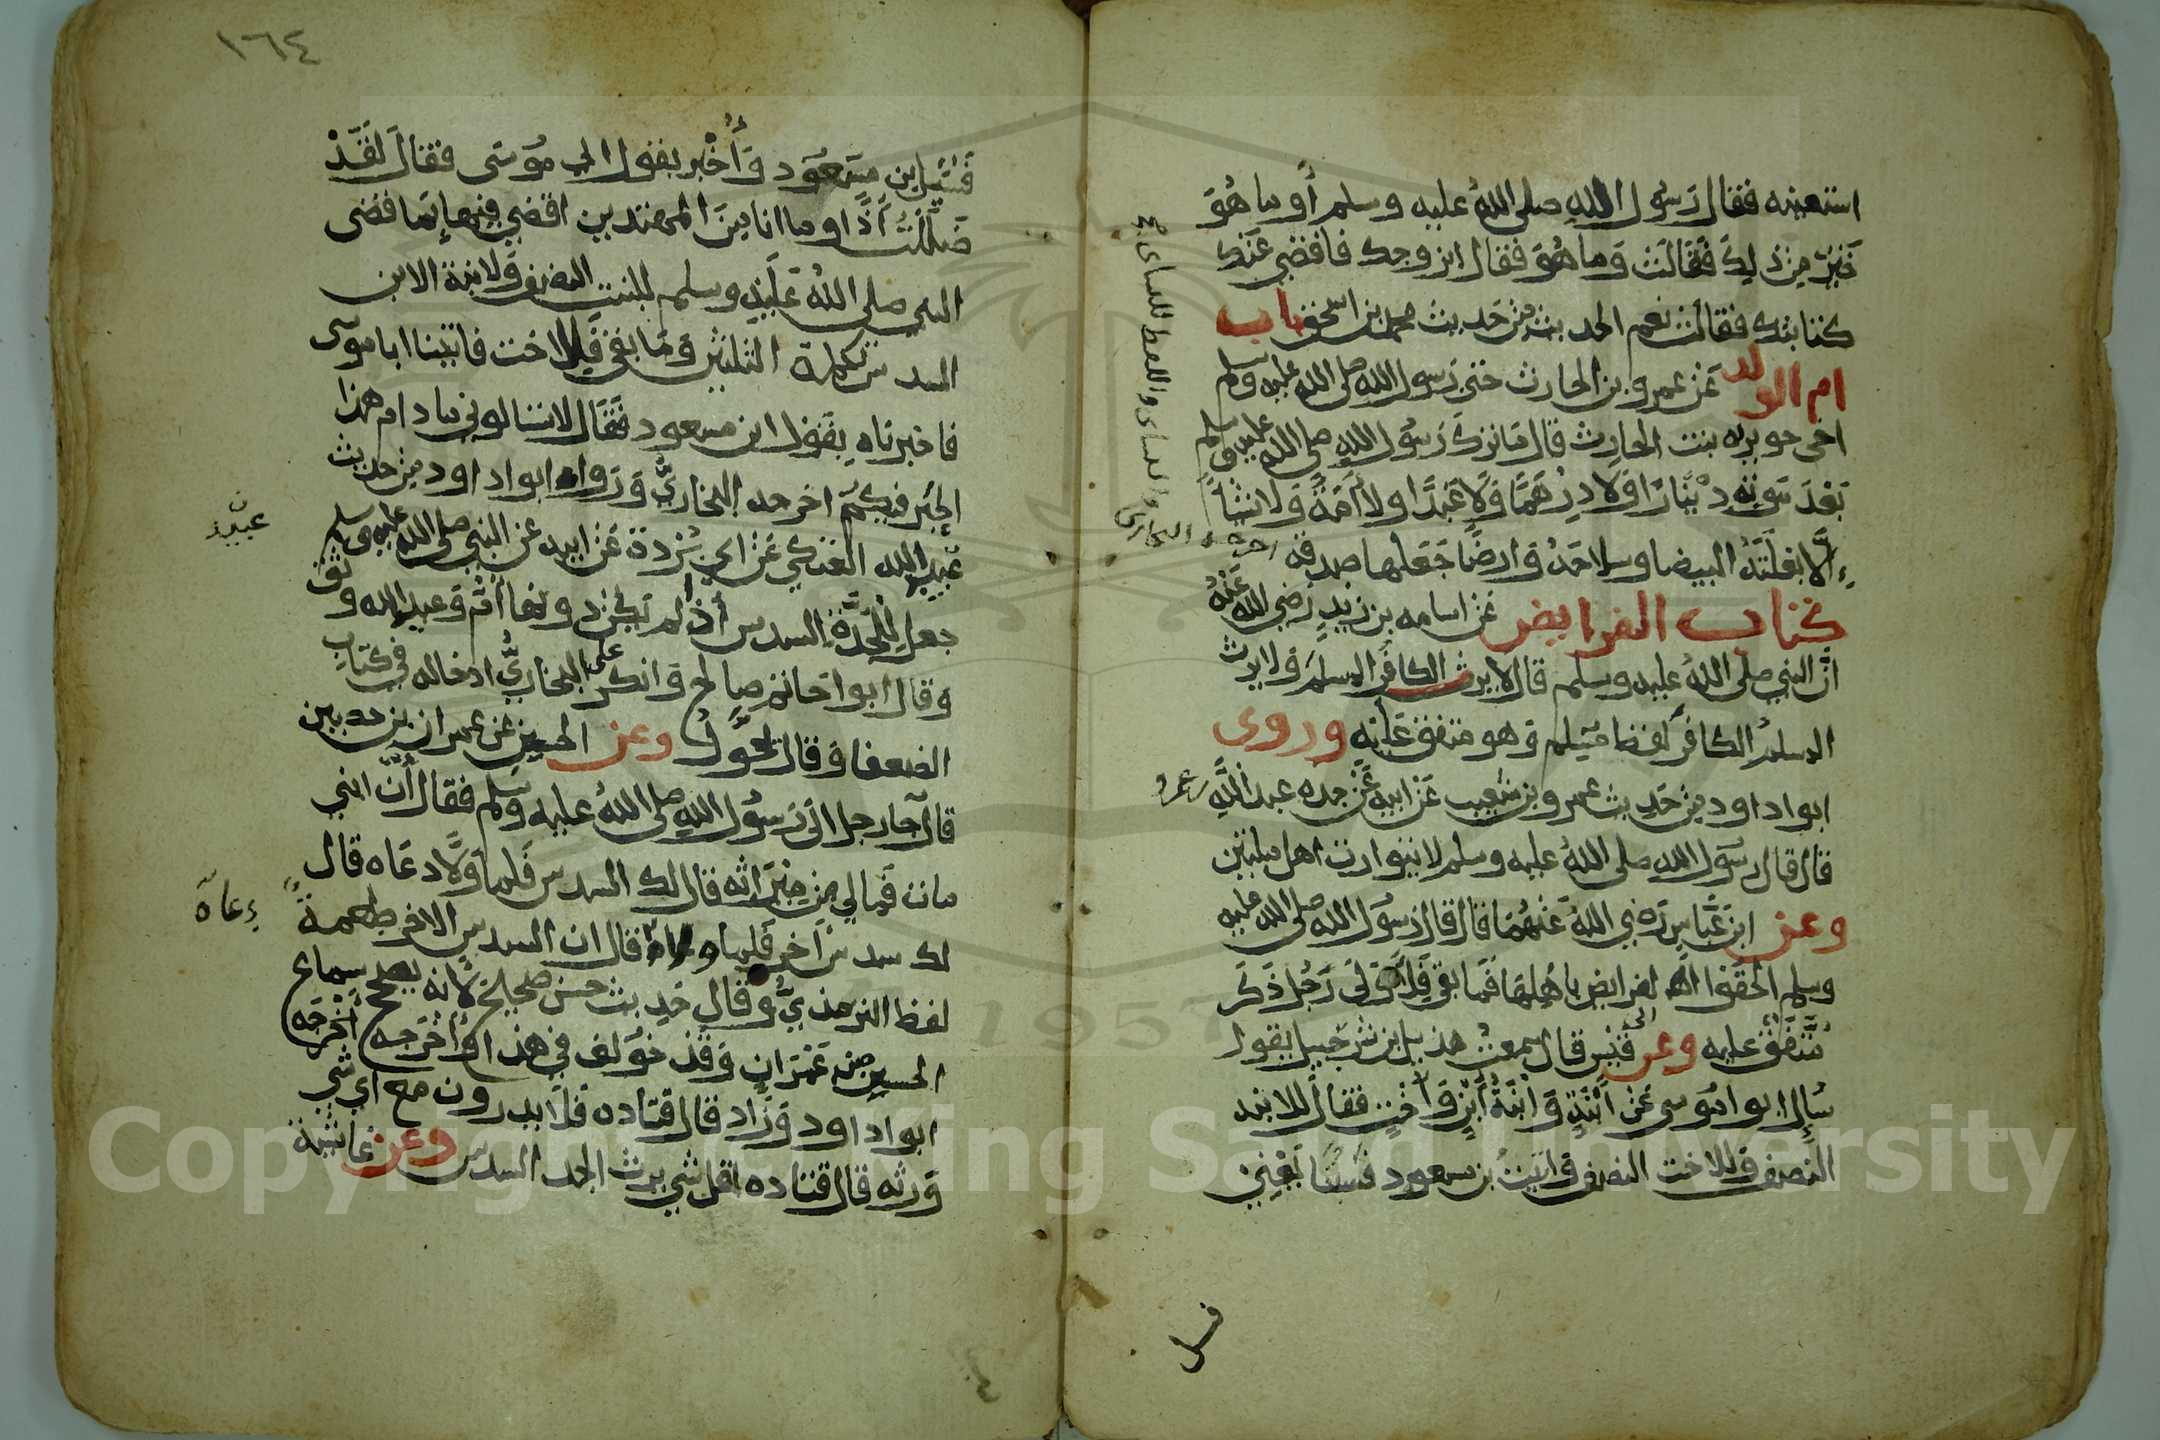 استعينه فقال رسول الله صلى الله عليه وسلم أو ما هو
خير من ذلك فقالت وما هو فقال اتزوجك فاقضي عنك
كتابتك فقالت نعم الحديث من حديث محمد بن اسحق باب
ام الولد عن عمرو بن الحارث ختن رسول الله صلى الله عليه وسلم
اخى جويريه بنت الحارث قال ما ترك رسول الله صلى الله عليه وسلم
بعد موته دينارا ولا درهما ولا عبدا ولا أمة ولا شيا
إلا بغلته البيضا وسلاحه وارضا جعلها صدقه اخرجه البخارى
كتاب الفرايض عن اسامه بن زيد رضي الله عنه
ان النبي صلى الله عليه وسلم قال لا يرث الكافر المسلم ولا يرث
المسلم الكافر لفظ مسلم وهو متفق عليه وروى
ابو داود من حديث عمرو بن شعيب عن ابيه عن جده عبد الله
عمرو
قال قال رسول الله صلى الله عليه وسلم لا يتوارث اهل ملتين
وعن ابن عباس رضي الله عنهما قال قال رسول الله صلى الله عليه
وسلم الحقوا الفرايض باهلها فما بقي فلاولى رجل ذكر
متفق عليه وعن قيس قال سمعت هذيل بن شرحبيل يقول
سإل ابو موسى عن ابنة وابنة ابن وأخت فقال للابنه
النصف وللاخت النصف وايت بن مسعود فسيتا بعني
فسل
١٦٤
فسئل ابن مسعود وأخبر بقول ابي موسى فقال لقد
ضللت اذا وما انا من المهتدين اقضي فيها بما قضى
النبي صلى الله عليه وسلم للبنت النصف ولابنة الابن
السدس تكملة الثلثين وما بقي فللاخت فاتينا ابا موسى
فاخبرناه بقول ابن مسعود فقال لا تسالوني ما دام هذا
الحبر فيكم اخرجه البخاري ورواه ابو داود من حديث
عبيد الله العتكي عن ابي بردة عن ابيه عن النبي صلى الله عليه وسلم
عبيد
جعل للجدة السدس اذا لم تكن دونها أم وعبيد الله وثق
وقال ابو احاتم صالح وانكر على البخاري ادخاله في كتاب
الضعفا وقال يحول وعن الحسن عن عمران بن حصين
قال جا رجل الى رسول الله صلى الله عليه وسلم فقال أن ابني
مات فمالي من ميراثه قال لك السدس فلما ولا دعاه قال
دعاه
لك سدس اخر فلما قال ان السدس الاخر طعمة
لفظ الترمذي وقال حديث حسن صحيح لانه يصحح سماع
الحسن من عمران وقد خولف في هذا وأخرجه أخرجه
ابو داود وزاد قال قتاده فلا يدرون مع اي شي
ورثه قال قتاده اقل شي يرث الجد السدس وعن عائشة
Copyright © King Saud University
1957